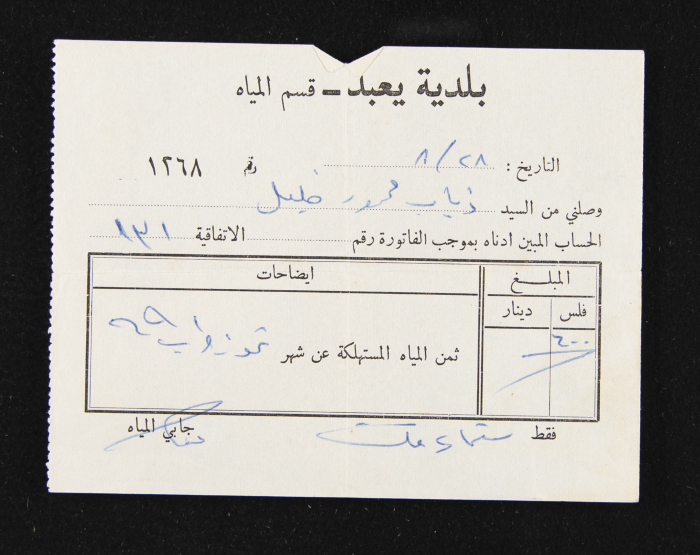 بلدية يعبد ـ قسم المياه
التاريخ : ٢٨/٨ رقم ١٢٦٨
وصلني من السيد ذياب محمود خليل
الحساب المبين ادناه بموجب الفاتورة رقم الاتفاقية ١٣١
المبلــغ ايضاحات
فلس دينار
٦٠٠ ثمن المياه المستهلكة عن شهر تموز وآب ٦٩
فقط ستماية فلس جابي المياه